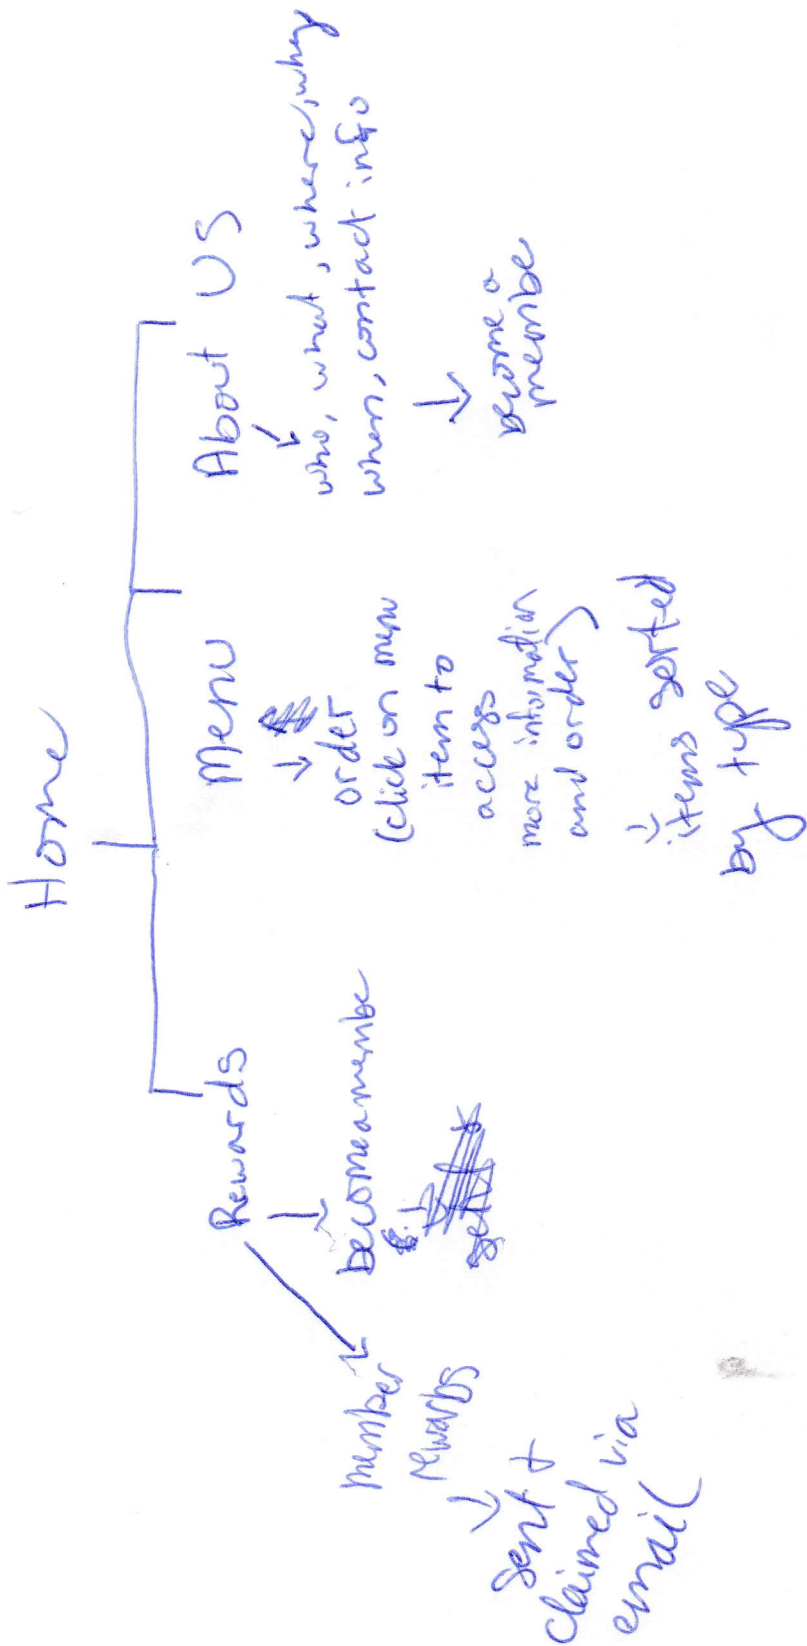 Home
Rewards
member
rewards
sent +
claimed via
email
become a membe
Menu
order
(click on menu
item to
access
more information
and order)
items sorted
by type
About US
who, what, where, why
when, contact info
become a
membe